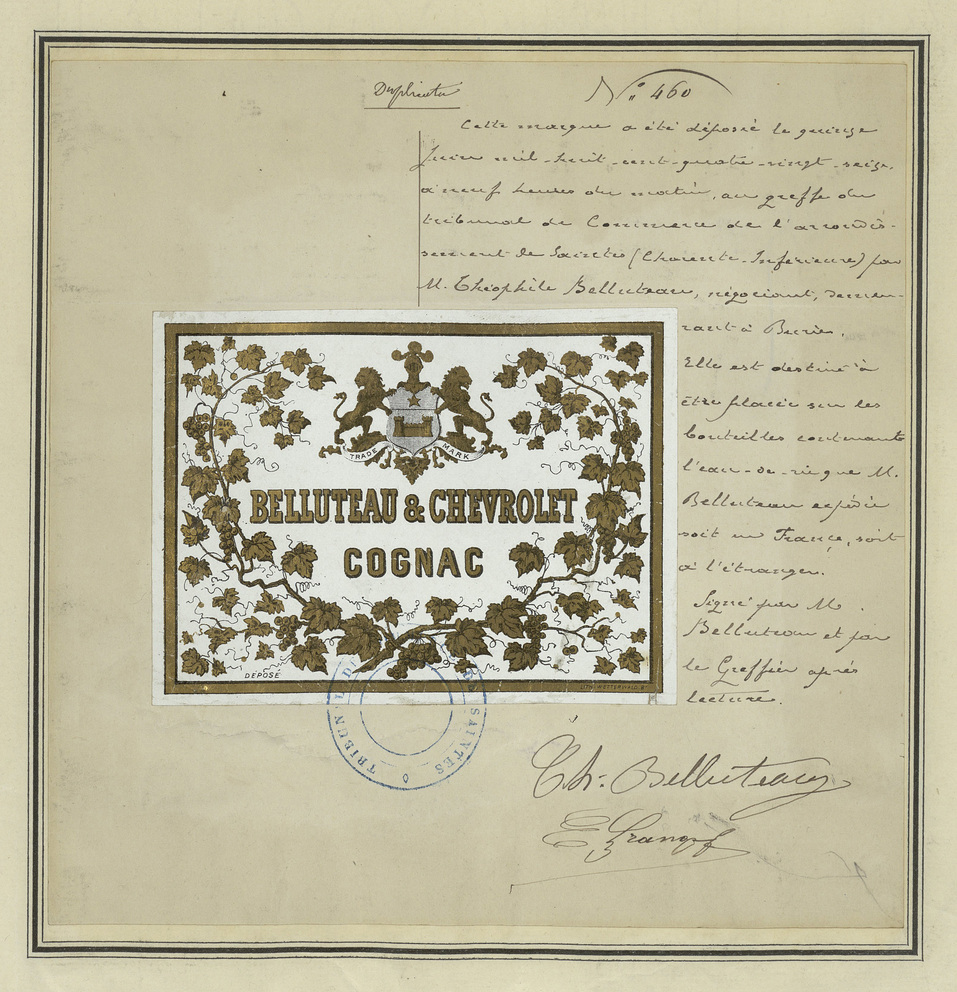 Duplicata
N° 460
Cette marque a été déposée le quinze
Juin mil-huit-cent-quatre-vingt-seize,
à neuf heures du matin, au greffe du
tribunal de Commerce de l'arrondis-
sement de Saintes (Charente-Inférieure) par
M. Théophile Belluteau, négociant, demeu-
rant à Burie.
Elle est destinée à
être placée sur les
bouteilles contenant
l'eau-de-vie que M.
Belluteau expédie
soit en France, soit
à l'étranger.
Signé par M.
Belluteau et par
le Greffier après
lecture.
TRADE MARK
BELLUTEAU & CHEVROLET
COGNAC
DÉPOSÉ
TRIBUN
SAINTES
Th. Belluteau